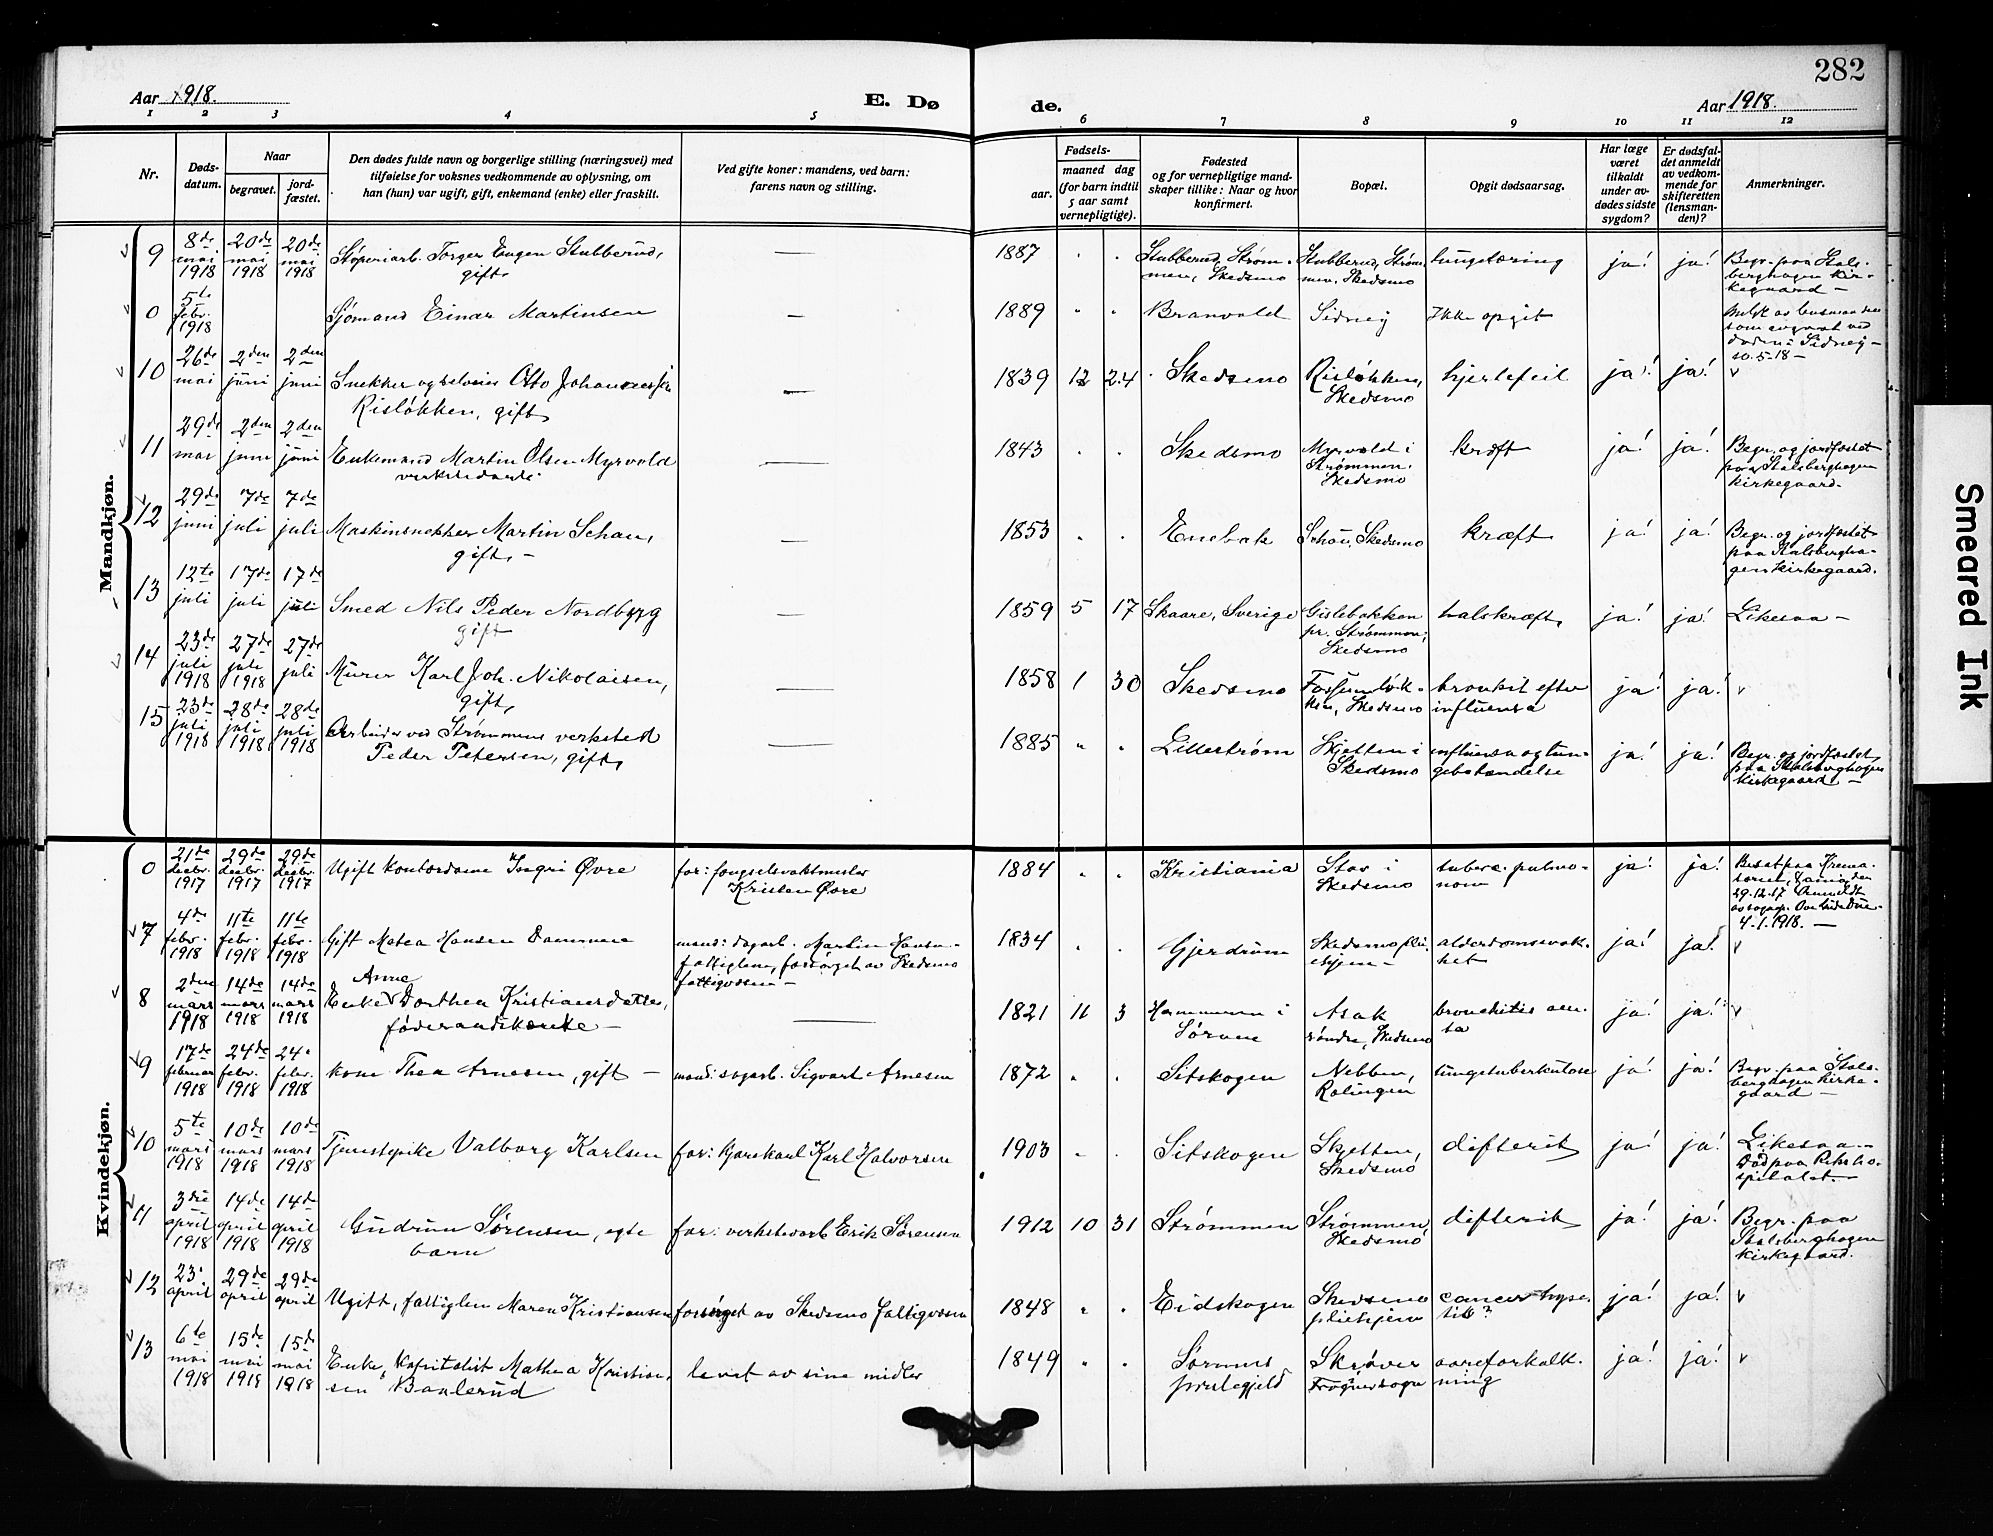 282
Aar 1918.
E. Dø
de.
Aar 1918.
1 2 3 4 5 6 7 8 9 10 11 12
Nr.
Døds-
datum.
Naar
begravet.
jord-
fæstet.
Den dødes fulde navn og borgerlige stilling (næringsvei) med
tilføielse for voksnes vedkommende av oplysning, om
han (hun) var ugift, gift, enkemand (enke) eller fraskilt.
Ved gifte koner: mandens, ved barn:
farens navn og stilling.
Fødsels-
aar.
maaned dag
(for barn indtil
5 aar samt
vernepligtige).
Fødested
og for vernepligtige mand-
skaper tillike: Naar og hvor
konfirmert.
Bopæl.
Opgit dødsaarsag.
Har læge
været
tilkaldt
under av-
dødes sidste
sygdom?
Er dødsfal-
det anmeldt
av vedkom-
mende for
skifteretten
(lensman-
den)?
Anmerkninger.
Mandkjøn.
9 8de mai 1918 20de mai 1918 20de mai 1918
Støperiarb. Torger Eugen Stubberud,
gift.
—
1887 " "
Stubberud, Strøm-
men, Skedsmo
Stubberud, Strøm-
men, Skedsmo
lungetæring
ja! ja!
Begr. paa Stals-
berghagen kir-
kegaard —
0 5te febr. 1918
Sjømand Einar Martinsen
—
1889 " "
Branvold
Sidney
Ikke opgit
døden i Sidney
10.5.18 —
10 26de mai 2den juni 2den juni
Snekker og selveier Otto Johannessen
Risløkken, gift
—
1839 12 24
Skedsmo
Risløkken,
Skedsmo
hjertefeil
ja! ja! "
11 29de mai 2den juni 2den juni
Enkemand Martin Olsen Myrvold
verkstedarb.
—
1843 " "
Skedsmo
Myrvold i
Strømmen,
Skedsmo
kræft
ja! ja!
Begr. og jordfæstet
paa Stalsberghagen
kirkegaard.
12 29de juni 7de juli 7de juli
Maskinsnekker Martin Schau,
gift. —
—
1853 " "
Enebak
Schou, Skedsmo
kræft
ja! ja!
Begr. og jordfæstet
paa Stalsbergha-
gen kirkegaard.
13 12te juli 17de juli 17de juli
Smed Nils Peder Nordberg
gift
—
1859 5 17
Skaare, Sverige
Gislebakken
pr. Strømmen,
Skedsmo
halskræft
ja! ja!
Likesaa —
14 23de juli 1918 27de juli 1918 27de juli
Murer Karl Joh. Nikolaisen,
gift,
—
1858 1 30
Skedsmo
Skedsmo
bronkit efter
influensa
ja! ja! "
15 23de juli 1918 28de juli 1918 28de juli 1918
Arbeider ved Strømmens verksted
Peder Petersen, gift,
—
1885 " "
Lillestrøm
Skjetten i
Skedsmo
influensa og lun-
gebetændelse
ja! ja!
Begr. og jordfæstet
paa Stalsberghagen
kirkegaard —
Kvindekjøn.
0 21de decbr. 1917 29de decbr. 1917 29de decbr. 1917
Ugift kontordame Ingri Øvre
far: fængselsvaktmester
Kristen Øvre
1884 " "
Kristiania
Stav i
Skedsmo
tuberc. pulmo-
num
ja! ja!
29.12.17 Anmeldt
4.1.1918. —
7 4de febr. 1918 11te febr. 1918 11te febr. 1918
Gift Matea Hansen Dammen
mand: dagarb. Martin Hansen
fattiglem, forsørget av Skedsmo
fattigvæsen —
1834 " "
Gjerdrum
Skedsmo plei-
ehjem —
alderdomssvak-
het
ja! ja! "
8 2den mars 1918 14de mars 1918 14de mars 1918
Anne
Enke Dorthea Kristiansdatter,
føderaadsenke —
—
1821 11 3
Hammeren i
Sørum
Asak
søndre, Skedsmo
bronchitis acu-
ta
ja! ja! "
9 17de februar 1918 24de febr. 1918 24. febr. 1918
kone Thea Arnesen, gift —
mand: sagarb. Sigvart Arnesen
1872 " "
Sitskogen
Nebben,
Rælingen
lungetuberkulose
ja! ja!
Begr. paa Stals-
berghagen kirke-
gaard —
10 5te mars 1918 10de mars 1918 10de mars 1918
Tjenestepike Valborg Karlsen
far: Kjørekarl Karl Halvorsen
1903 " "
Sitskogen
Skjetten,
Skedsmo
difterit
ja! ja!
Likesaa —
Død paa Riksho-
spitalet. —
11 3die april 1918 14de april 1918 14de april 1918
Gudrun Sørensen, egte
barn
far: verkstedarb Erik Sørensen
1912 10 31
Strømmen
Strømmen,
Skedsmo
difterit
ja! ja!
Begr. paa
Stalsberghagen
kirkegaard.
12 23. april 29de april 29de april
Ugift, fattiglem Maren Kristiansen
forsørget av Skedsmo fattigvæsen
1848 " "
Eidskogen
Skedsmo
pleiehjem
cancer hepa-
tik?
ja! ja! "
13 6te mai 1918 15de mai 1918 15de mai 1918
Enke, kapitalist Mathea Kristian-
sen Baulerud
levet av sine midler
1849 " "
Sørums
prestegjeld
Skrøver
Frognersogn
aareforkalk-
ning
ja! ja! "
Smeared Ink